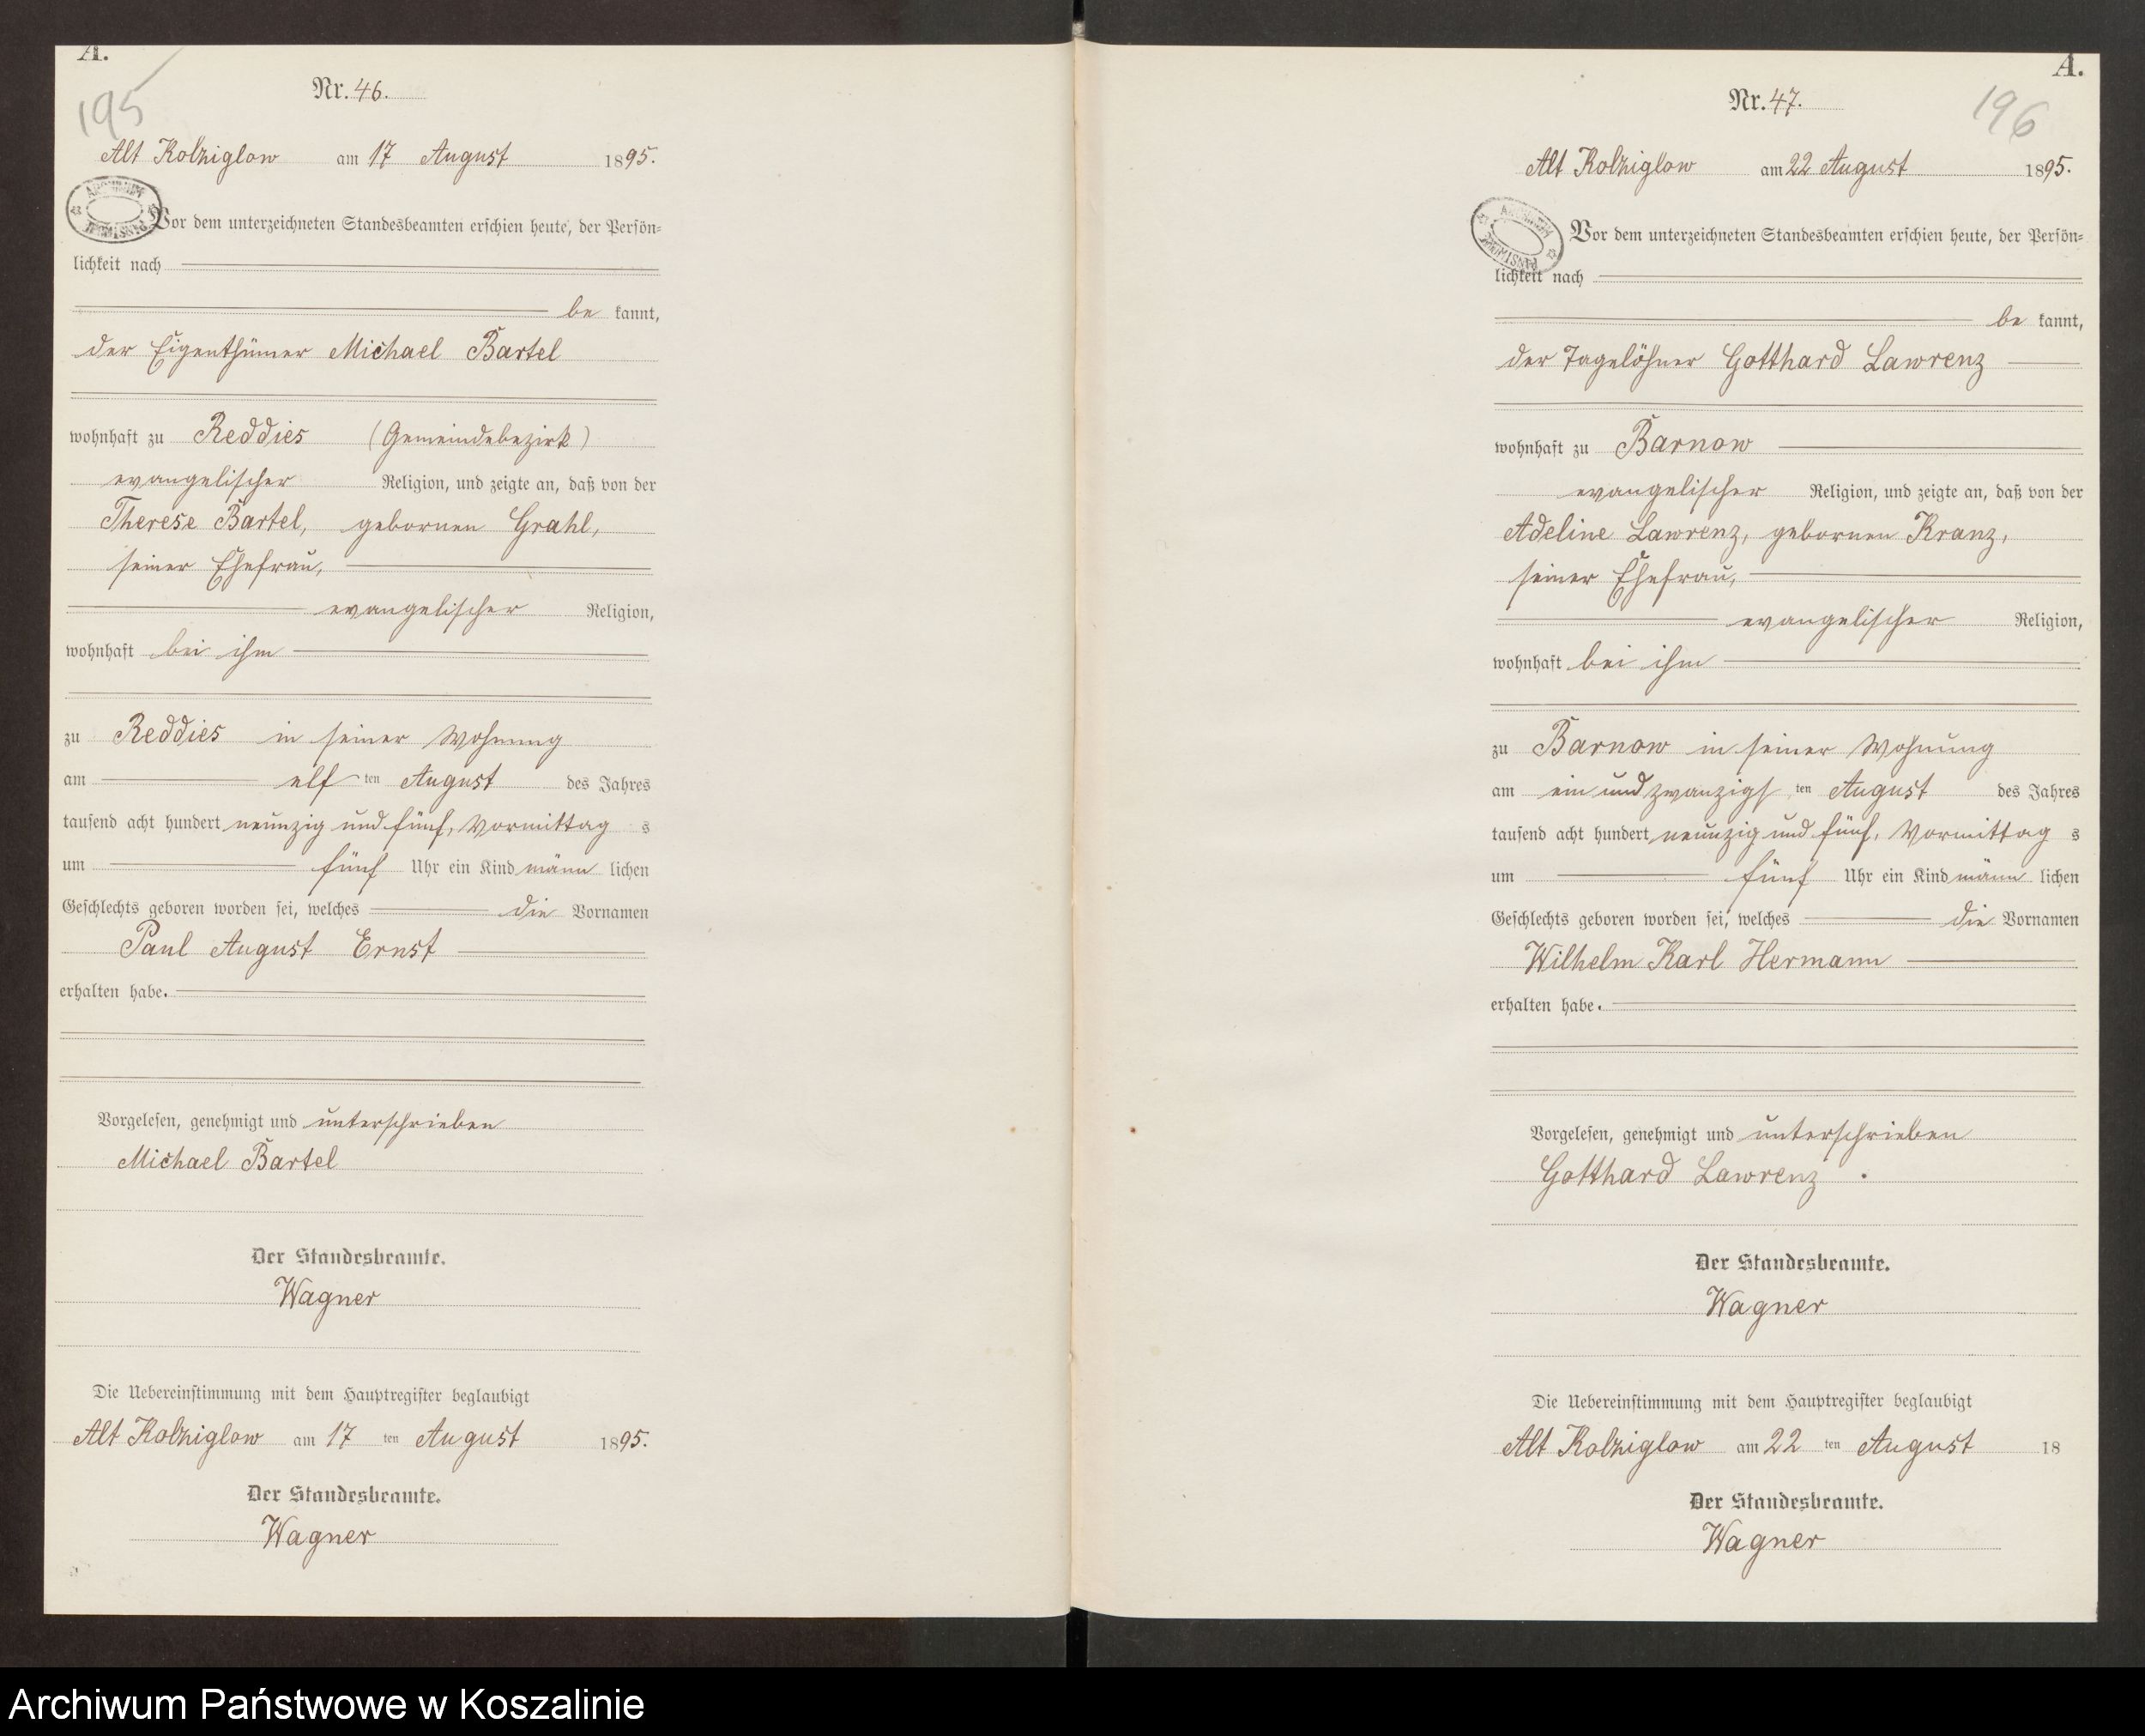 A.
195
Nr. 46.
Alt Kolziglow am 17 August 1895.
Vor dem unterzeichneten Standesbeamten erschien heute, der Persön=
lichkeit nach
be kannt,
der Eigenthümer Michael Bartel
wohnhaft zu Reddies (Gemeindebezirk)
evangelischer Religion, und zeigte an, daß von der
Therese Bartel, gebornen Grahl,
seiner Ehefrau,
evangelischer Religion,
wohnhaft bei ihm
zu Reddies in seiner Wohnung
am elf ten August des Jahres
tausend acht hundert neunzig und fünf, Vormittag s
um fünf Uhr ein Kind männ lichen
Geschlechts geboren worden sei, welches die Vornamen
Paul August Ernst
erhalten habe.
Vorgelesen, genehmigt und unterschrieben
Michael Bartel
Der Standesbeamte.
Wagner
Die Uebereinstimmung mit dem Hauptregister beglaubigt
Alt Kolziglow am 17 ten August 1895.
Der Standesbeamte.
Wagner
A.
196
Nr. 47.
Alt Kolziglow am 22 August 1895.
Vor dem unterzeichneten Standesbeamten erschien heute, der Persön=
lichkeit nach
be kannt,
der Tagelöhner Gotthard Lawrenz
wohnhaft zu Barnow
evangelischer Religion, und zeigte an, daß von der
Adeline Lawrenz, gebornen Kranz,
seiner Ehefrau,
evangelischer Religion,
wohnhaft bei ihm
zu Barnow in seiner Wohnung
am ein und zwanzigs ten August des Jahres
tausend acht hundert neunzig und fünf, Vormittag s
um fünf Uhr ein Kind männ lichen
Geschlechts geboren worden sei, welches die Vornamen
Wilhelm Karl Hermann
erhalten habe.
Vorgelesen, genehmigt und unterschrieben
Gotthard Lawrenz
Der Standesbeamte.
Wagner
Die Uebereinstimmung mit dem Hauptregister beglaubigt
Alt Kolziglow am 22 ten August 18
Der Standesbeamte.
Wagner
Archiwum Państwowe w Koszalinie